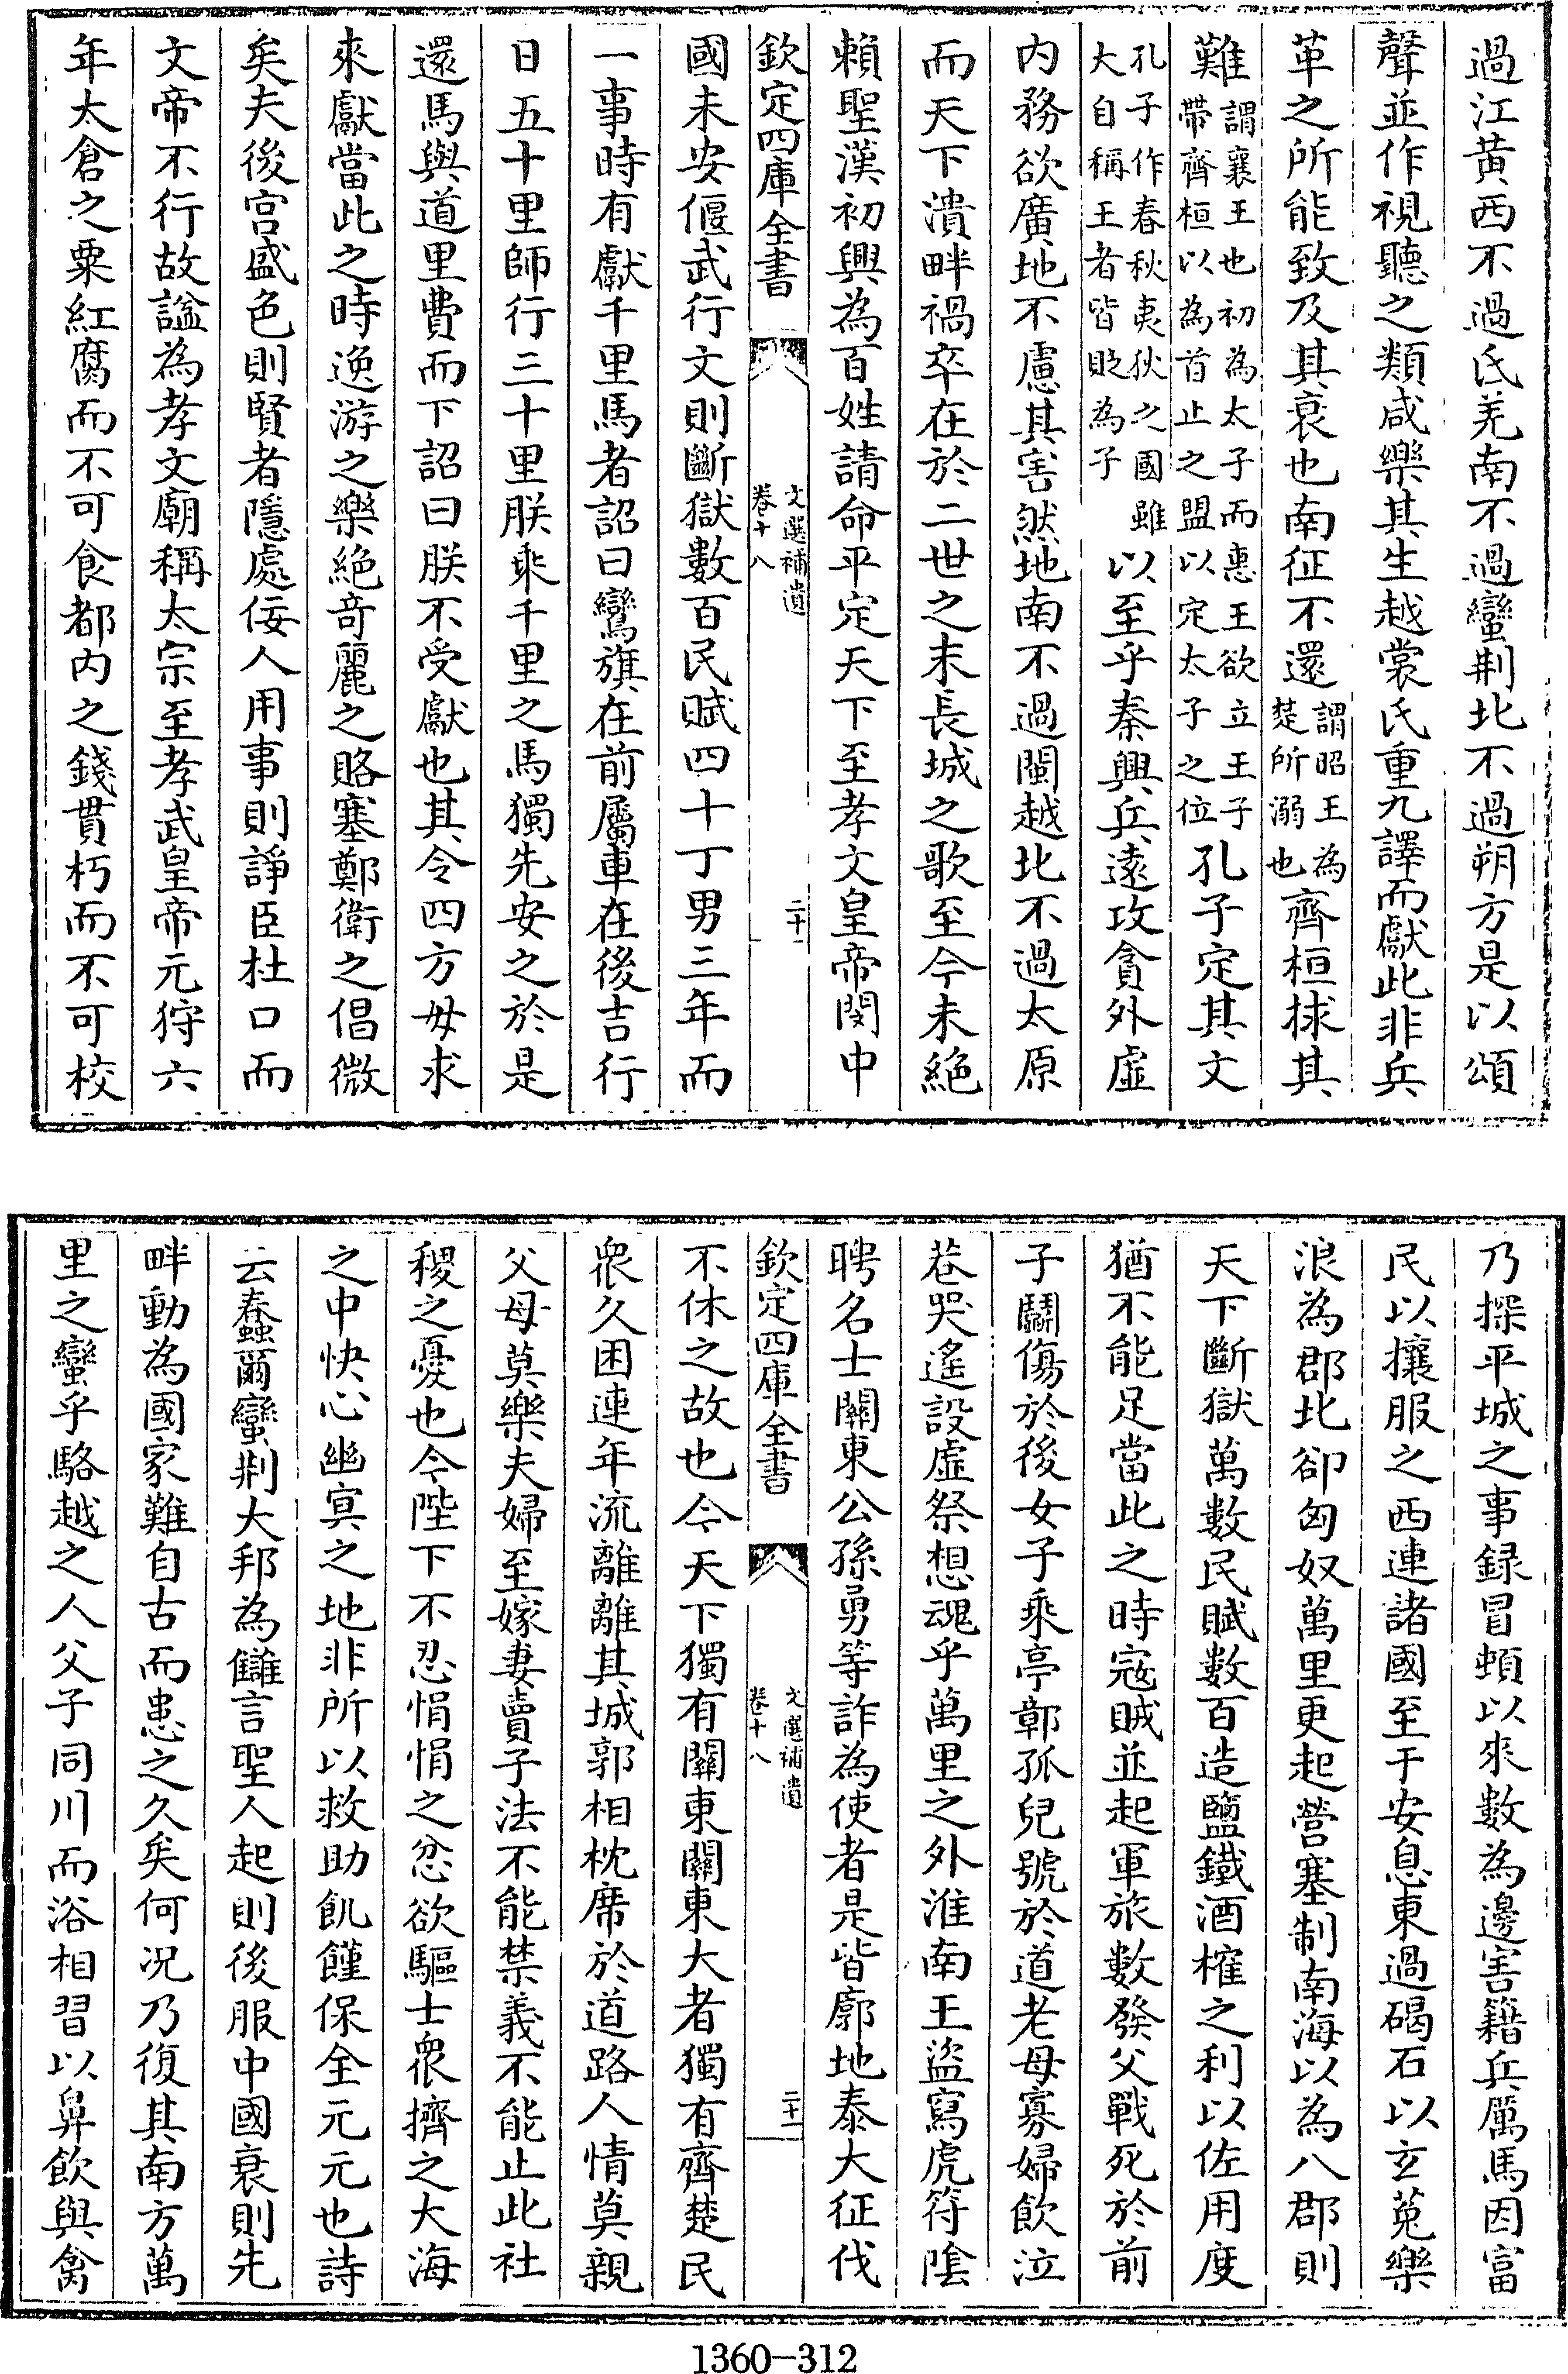 過江黄西不過氐羌南不過蠻荆北不過朔方是以頌
聲並作視聽之類咸樂其生越裳氏重九譯而獻此非兵
革之所能致及其衰也南征不還謂昭王為楚所溺也齊桓捄其
難謂襄王也初為太子而惠王欲立王子帶齊桓以為首止之盟以定太子之位孔子定其文
孔子作春秋夷狄之國雖大自稱王者皆貶為子以至乎秦興兵逺攻貪外虛
内務欲廣地不慮其害然地南不過閩越北不過太原
而天下潰畔禍卒在於二世之末長城之歌至今未絶
賴聖漢初興為百姓請命平定天下至孝文皇帝閔中
欽定四庫全書
文選補遺
卷十八
二十
國未安偃武行文則斷獄數百民賦四十丁男三年而
一事時有獻千里馬者詔曰鸞旗在前屬車在後吉行
日五十里師行三十里朕乘千里之馬獨先安之於是
還馬與道里費而下詔曰朕不受獻也其令四方毋求
來獻當此之時逸游之樂絶奇麗之賂塞鄭衛之倡微
矣夫後宫盛色則賢者隱處佞人用事則諍臣杜口而
文帝不行故謚為孝文廟稱太宗至孝武皇帝元狩六
年太倉之粟紅腐而不可食都内之錢貫朽而不可校
乃探平城之事録冒頓以來數為邊害籍兵厲馬因富
民以攘服之西連諸國至于安息東過碣石以玄菟樂
浪為郡北卻匈奴萬里更起營塞制南海以為八郡則
天下斷獄萬數民賦數百造鹽鐵酒榷之利以佐用度
猶不能足當此之時寇賊並起軍旅數發父戰死於前
子鬭傷於後女子乘亭鄣孤兒號於道老母寡婦飲泣
巷哭遙設虛祭想魂乎萬里之外淮南王盜寫虎符隂
聘名士關東公孫勇等詐為使者是皆廓地泰大征伐
欽定四庫全書
文選補遺
卷十八
二十一
不休之故也今天下獨有關東關東大者獨有齊楚民
衆久困連年流離離其城郭相枕席於道路人情莫親
父母莫樂夫婦至嫁妻賣子法不能禁義不能止此社
稷之憂也今陛下不忍悁悁之忿欲驅士衆擠之大海
之中快心幽冥之地非所以救助飢饉保全元元也詩
云蠢爾蠻荆大邦為讎言聖人起則後服中國衰則先
畔動為國家難自古而患之久矣何况乃復其南方萬
里之蠻乎駱越之人父子同川而浴相習以鼻飲與禽
1360-312